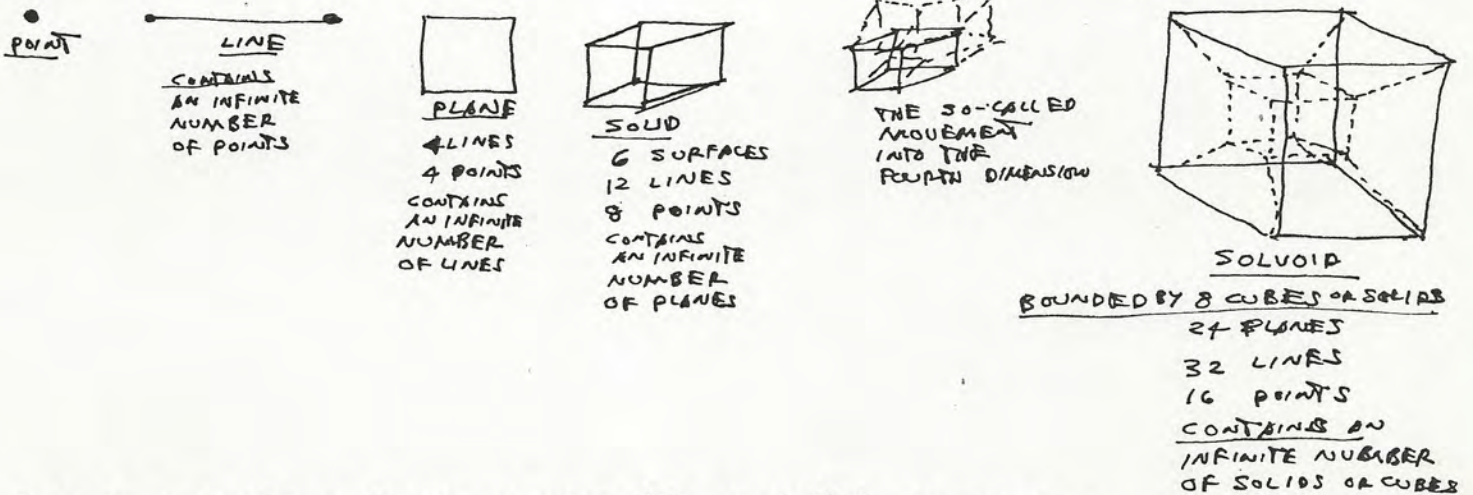 POINT
LINE
CONTAINS
AN INFINITE
NUMBER
OF POINTS
PLANE
4 LINES
4 POINTS
CONTAINS
AN INFINITE
NUMBER
OF LINES
SOLID
6 SURFACES
12 LINES
8 POINTS
CONTAINS
AN INFINITE
NUMBER
OF PLANES
THE SO-CALLED
MOVEMENT
INTO THE
FOURTH DIMENSION
SOLVOID
BOUNDED BY 8 CUBES OR SOLIDS
24 PLANES
32 LINES
16 POINTS
CONTAINS AN
INFINITE NUMBER
OF SOLIDS OR CUBES